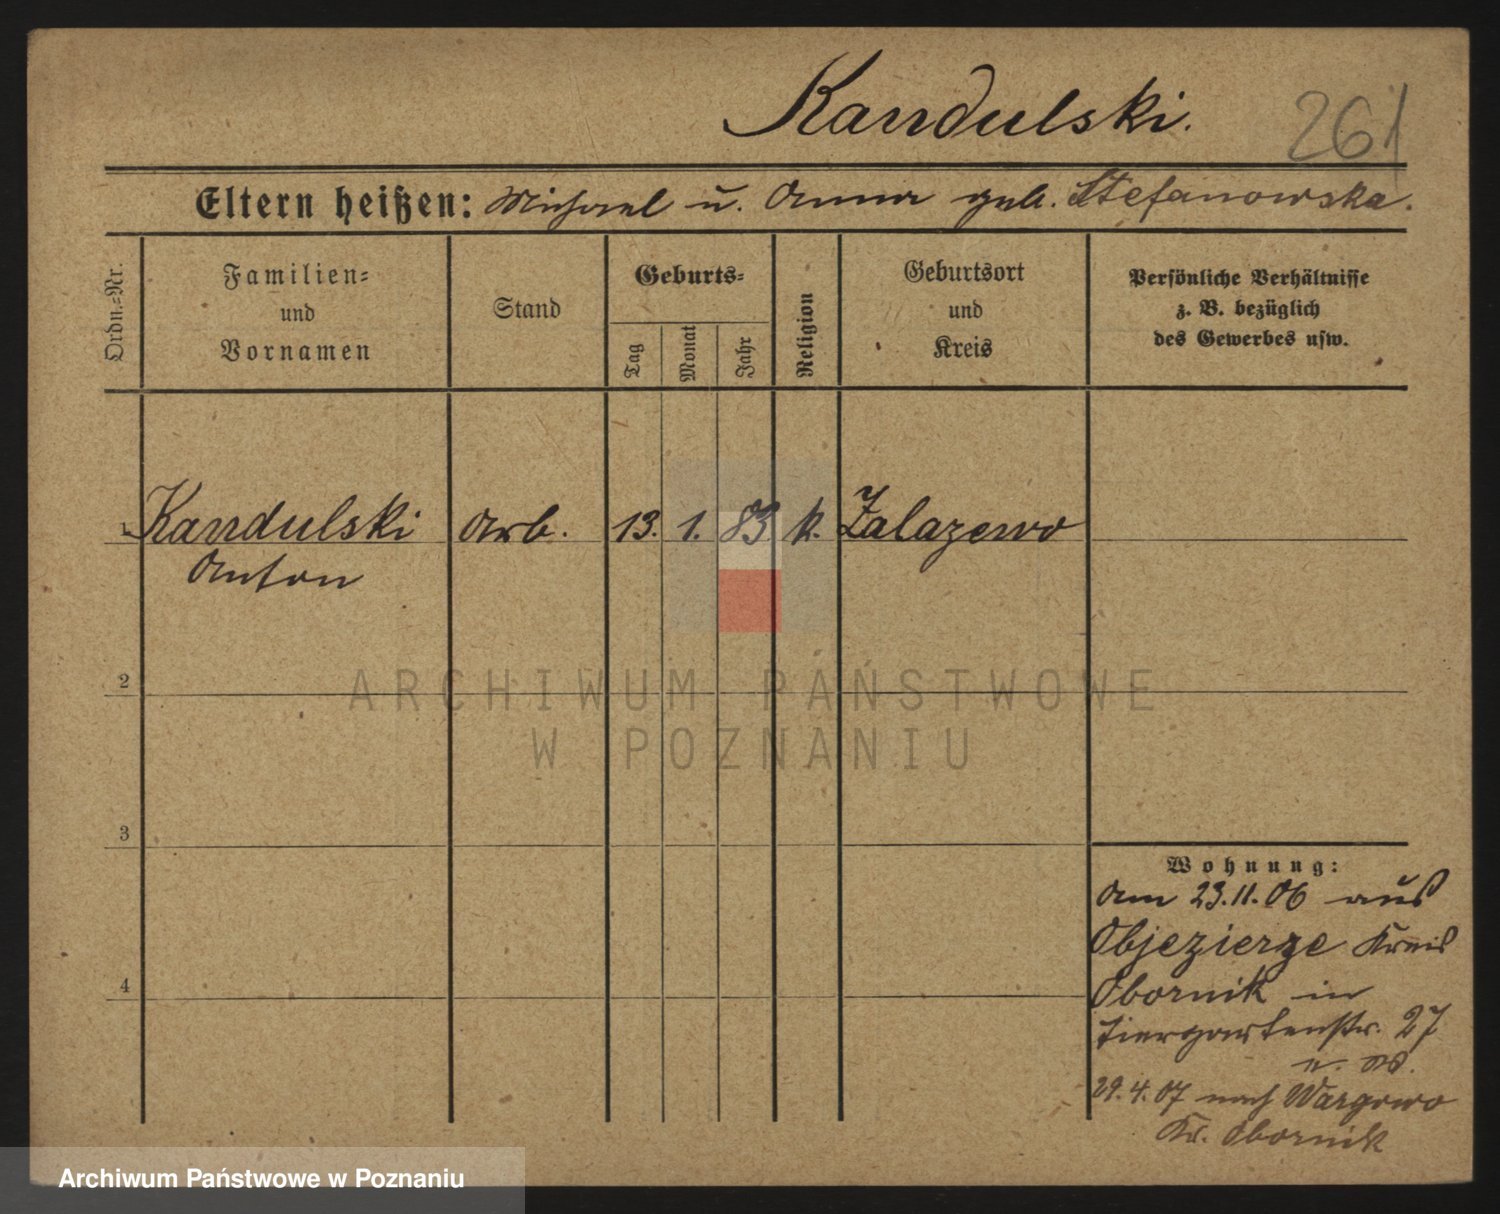 Kandulski.
261
Eltern heißen: Michael u. Anna geb. Stefanowska.
Ordn.=Nr.
Familien=
und
Vornamen
Stand
Geburts=
Tag
Monat
Jahr
Religion
Geburtsort
und
Kreis
Persönliche Verhältnisse
z. B. bezüglich
des Gewerbes usw.
1 Kandulski Arb. 13. 1. 83 k. Zalazewo
Anton
2
3
4
Wohnung:
Am 23.11.06 aus
Objezierze Kreis
Obornik in
Tiergartenstr. 27
29.4.07 nach Wargowo
Kr. Obornik
ARCHIWUM PAŃSTWOWE
W POZNANIU
Archiwum Państwowe w Poznaniu